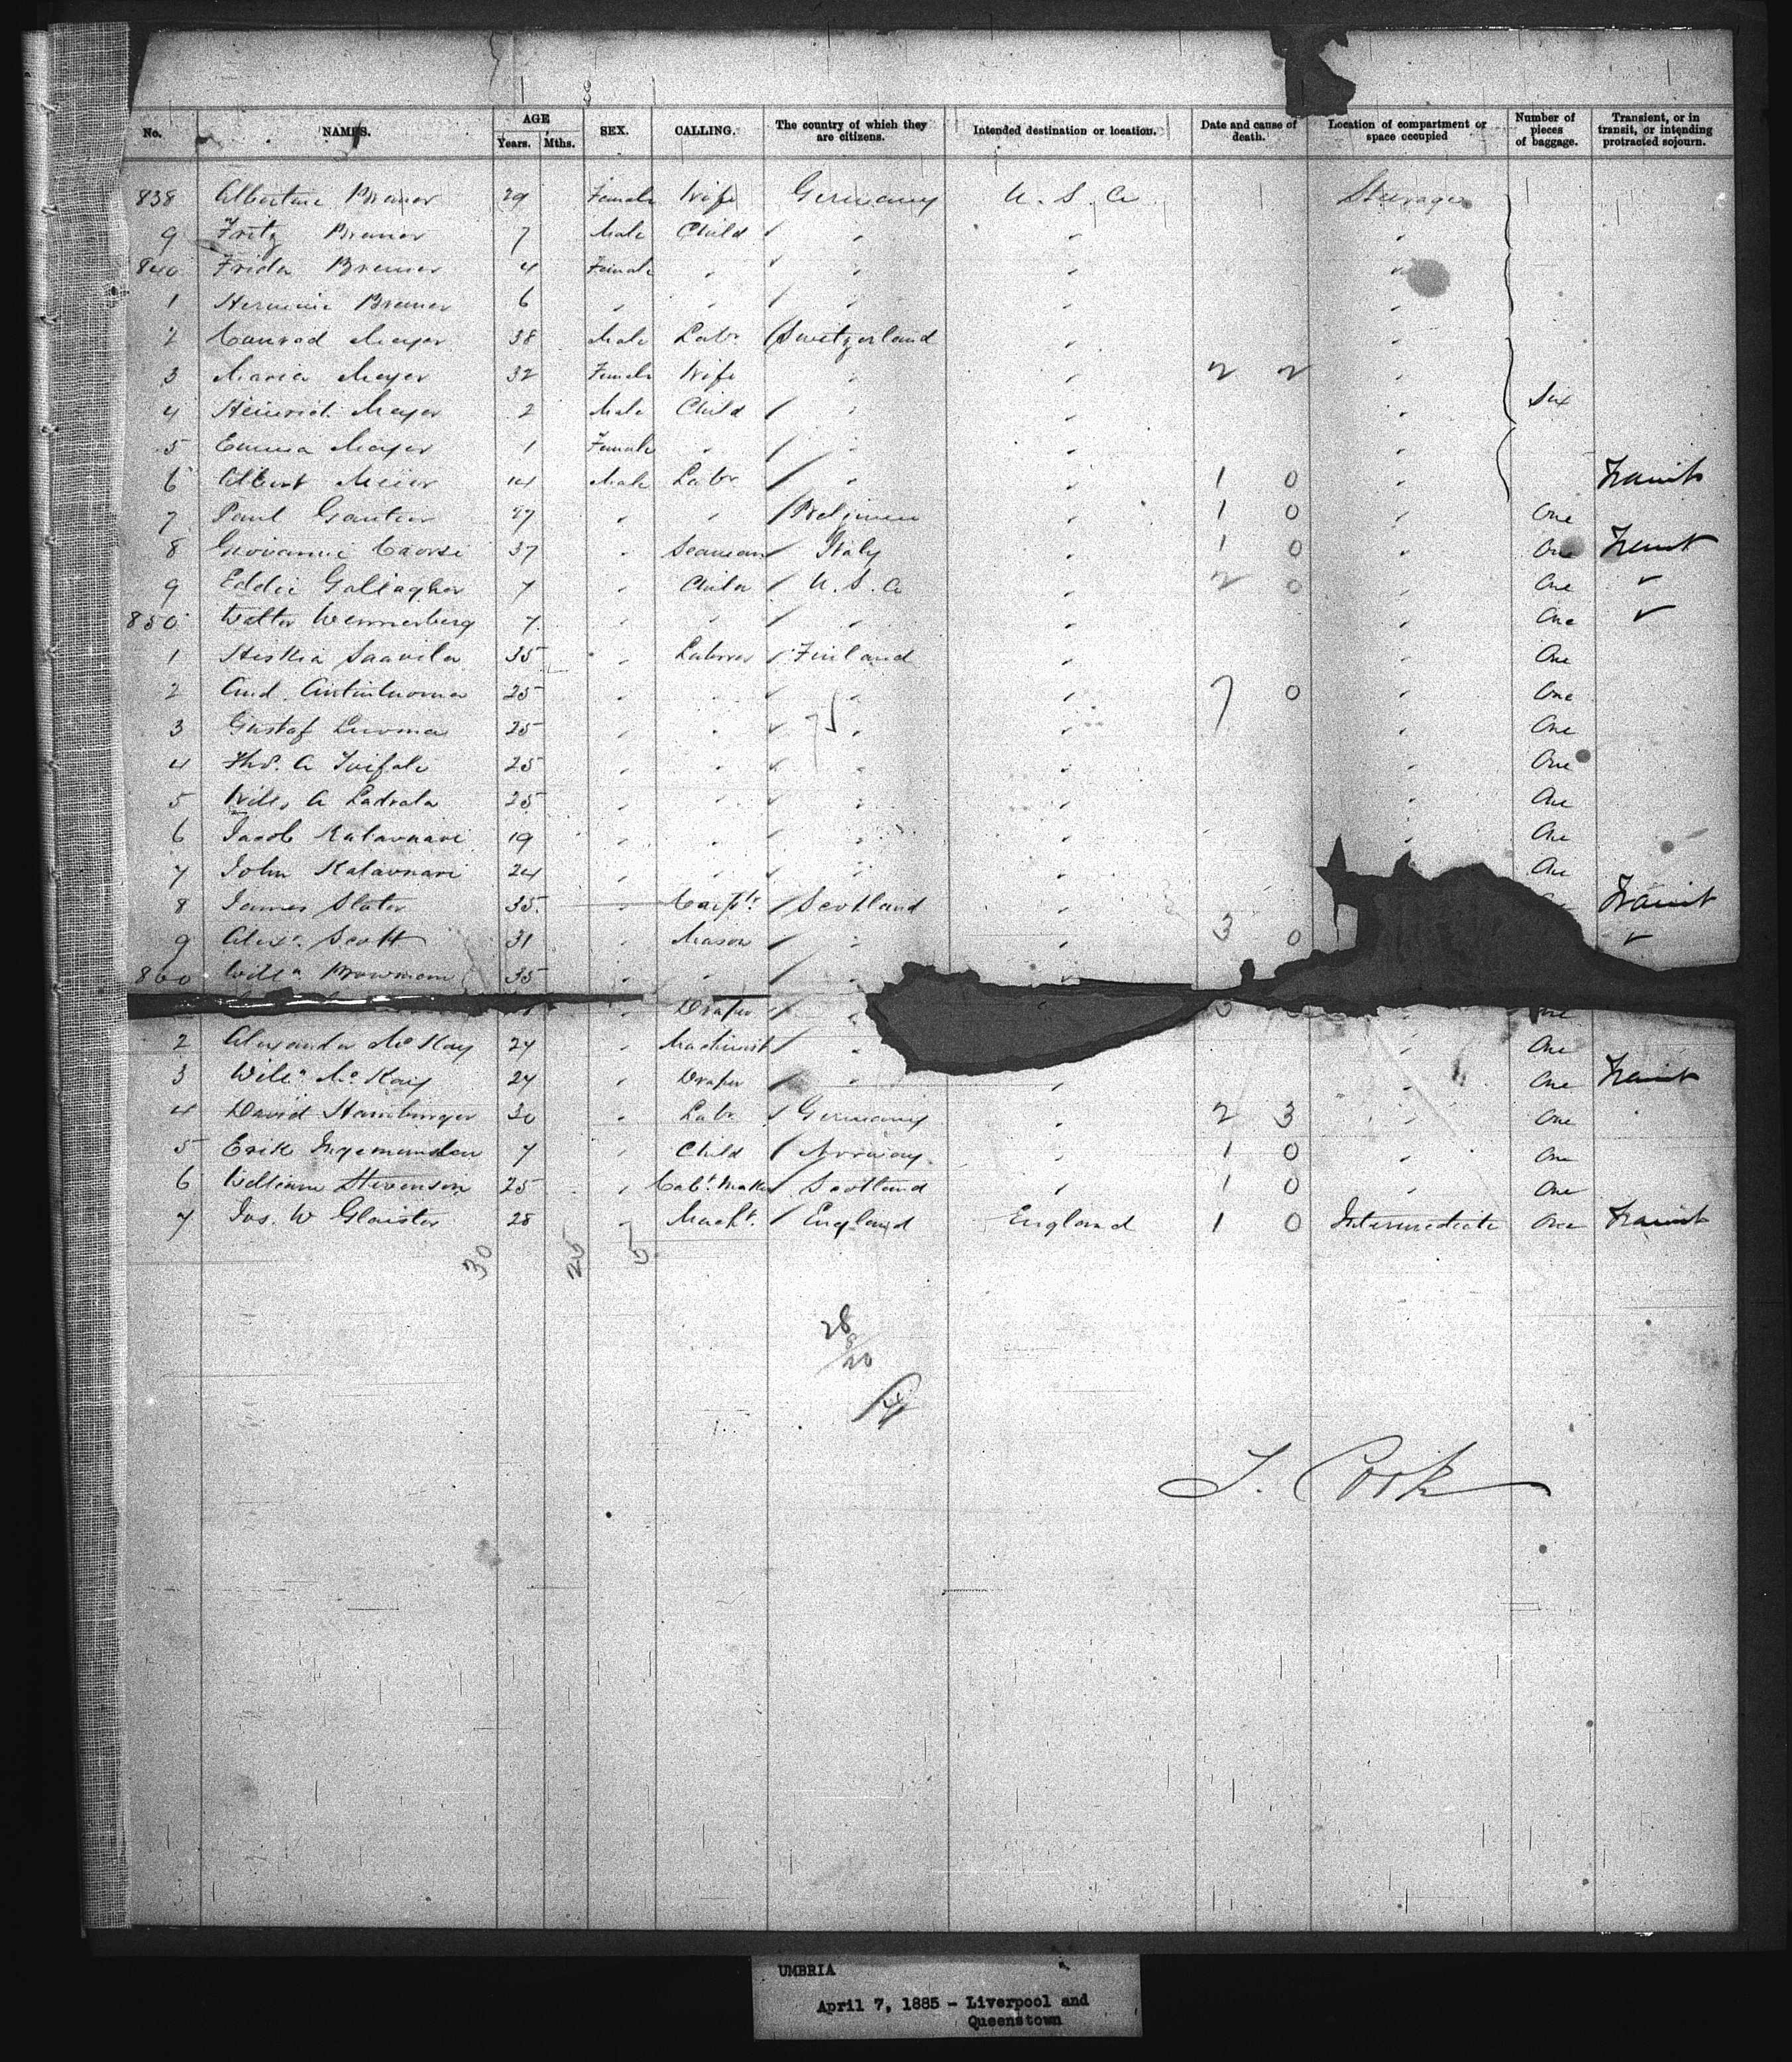 No. NAMES. AGE Years. Mths. SEX. CALLING. The country of which they are citizens. Intended destination or location. Date and cause of death. Location of compartment or space occupied Number of pieces of baggage. Transient, or in transit, or intending protracted sojourn.
838 Albertine Bremer 29 Female Wife Germany U. S. A Steerage
9 Fritz Bremer 7 Male Child " " "
840 Frida Bremer 4 Female " " " "
1 Hermine Bremer 6 " " " " "
2 Conrad Meyer 38 Male Labr Switzerland " "
3 Maria Meyer 32 Female Wife " " 2 2 "
4 Heinrich Meyer 2 Male Child " " " Six
5 Emma Meyer 1 Female " " " "
6 Albert Meier 14 Male Labr " " 1 0 " Transit
7 Paul Gautier 27 " " " 1 0 " One
8 Giovannie Caorsi 37 " Seaman Italy " 1 0 " One Transit
9 Eddie Gallagher 7 " Child U. S. A " 2 0 " One "
850 Walter Wennerberg 7 " " " " " One "
1 Hiskia Saavila 35 " Labourer Finland " " One
2 And. Antintuoma 25 " " " " 7 0 " One
3 Gustaf Luoma 25 " " 75 " " " One
4 25 " " " " " One
5 Will. A Ladvala 25 " " " " " One
6 Jacob Kalavnavi 19 " " " " " One
7 John Kalavnavi 24 " " " " One
8 James Slater 35 " Carptr Scotland " Transit
9 Alexr. Scott 31 " Mason " " 3 0 "
860 Willm Bowman 35 " " " "
" Draper " " " One
2 Alexander McKay 24 " Machinist " " One
3 Willm McKay 24 " Draper " " " One Transit
4 David Hamburger 30 " Labr Germany " 2 3 " One
5 Erik Ingemundsen 7 " Child Norway " 1 0 " One
6 William Stevenson 25 " Cabt. Maker Scotland " 1 0 " One
7 Jos. W Glaister 28 " Macht. England England 1 0 Intermediate One Transit
30 25 5
28
/20
J. Cook
UMBRIA
April 7, 1885 - Liverpool and
Queenstown